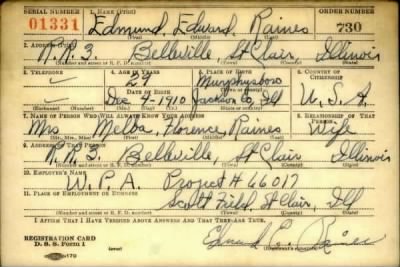 SERIAL NUMBER 1. NAME (Print) ORDER NUMBER
01331 Edmund Edward Raines 730
(First) (Middle) (Last)
2. ADDRESS (Print)
R.R.3. Belleville St Clair Illinois
(Number and street or R. F. D. number) (Town) (County) (State)
3. TELEPHONE 4. AGE IN YEARS 5. PLACE OF BIRTH 6. COUNTRY OF CITIZENSHIP
29 Murphysboro
(Town or county)
DATE OF BIRTH
Dec 4-1910 Jackson Co, Ill U.S.A.
(Exchange) (Number) (Mo.) (Day) (Yr.) (State or country)
7. NAME OF PERSON WHO WILL ALWAYS KNOW YOUR ADDRESS 8. RELATIONSHIP OF THAT PERSON
Mrs Melba, Florence, Raines Wife
(Mr., Mrs., Miss) (First) (Middle) (Last)
9. ADDRESS OF THAT PERSON
R.R.3 Belleville, St Clair Illinois
(Number and street or R. F. D. number) (Town) (County) (State)
10. EMPLOYER'S NAME
W.P.A. Project # 66017
11. PLACE OF EMPLOYMENT OR BUSINESS
Scott Field, St Clair, Ill
(Number and street or R. F. D. number) (Town) (County) (State)
I AFFIRM THAT I HAVE VERIFIED ABOVE ANSWERS AND THAT THEY ARE TRUE.
REGISTRATION CARD
D. S. S. Form 1
Edmund E. Raines